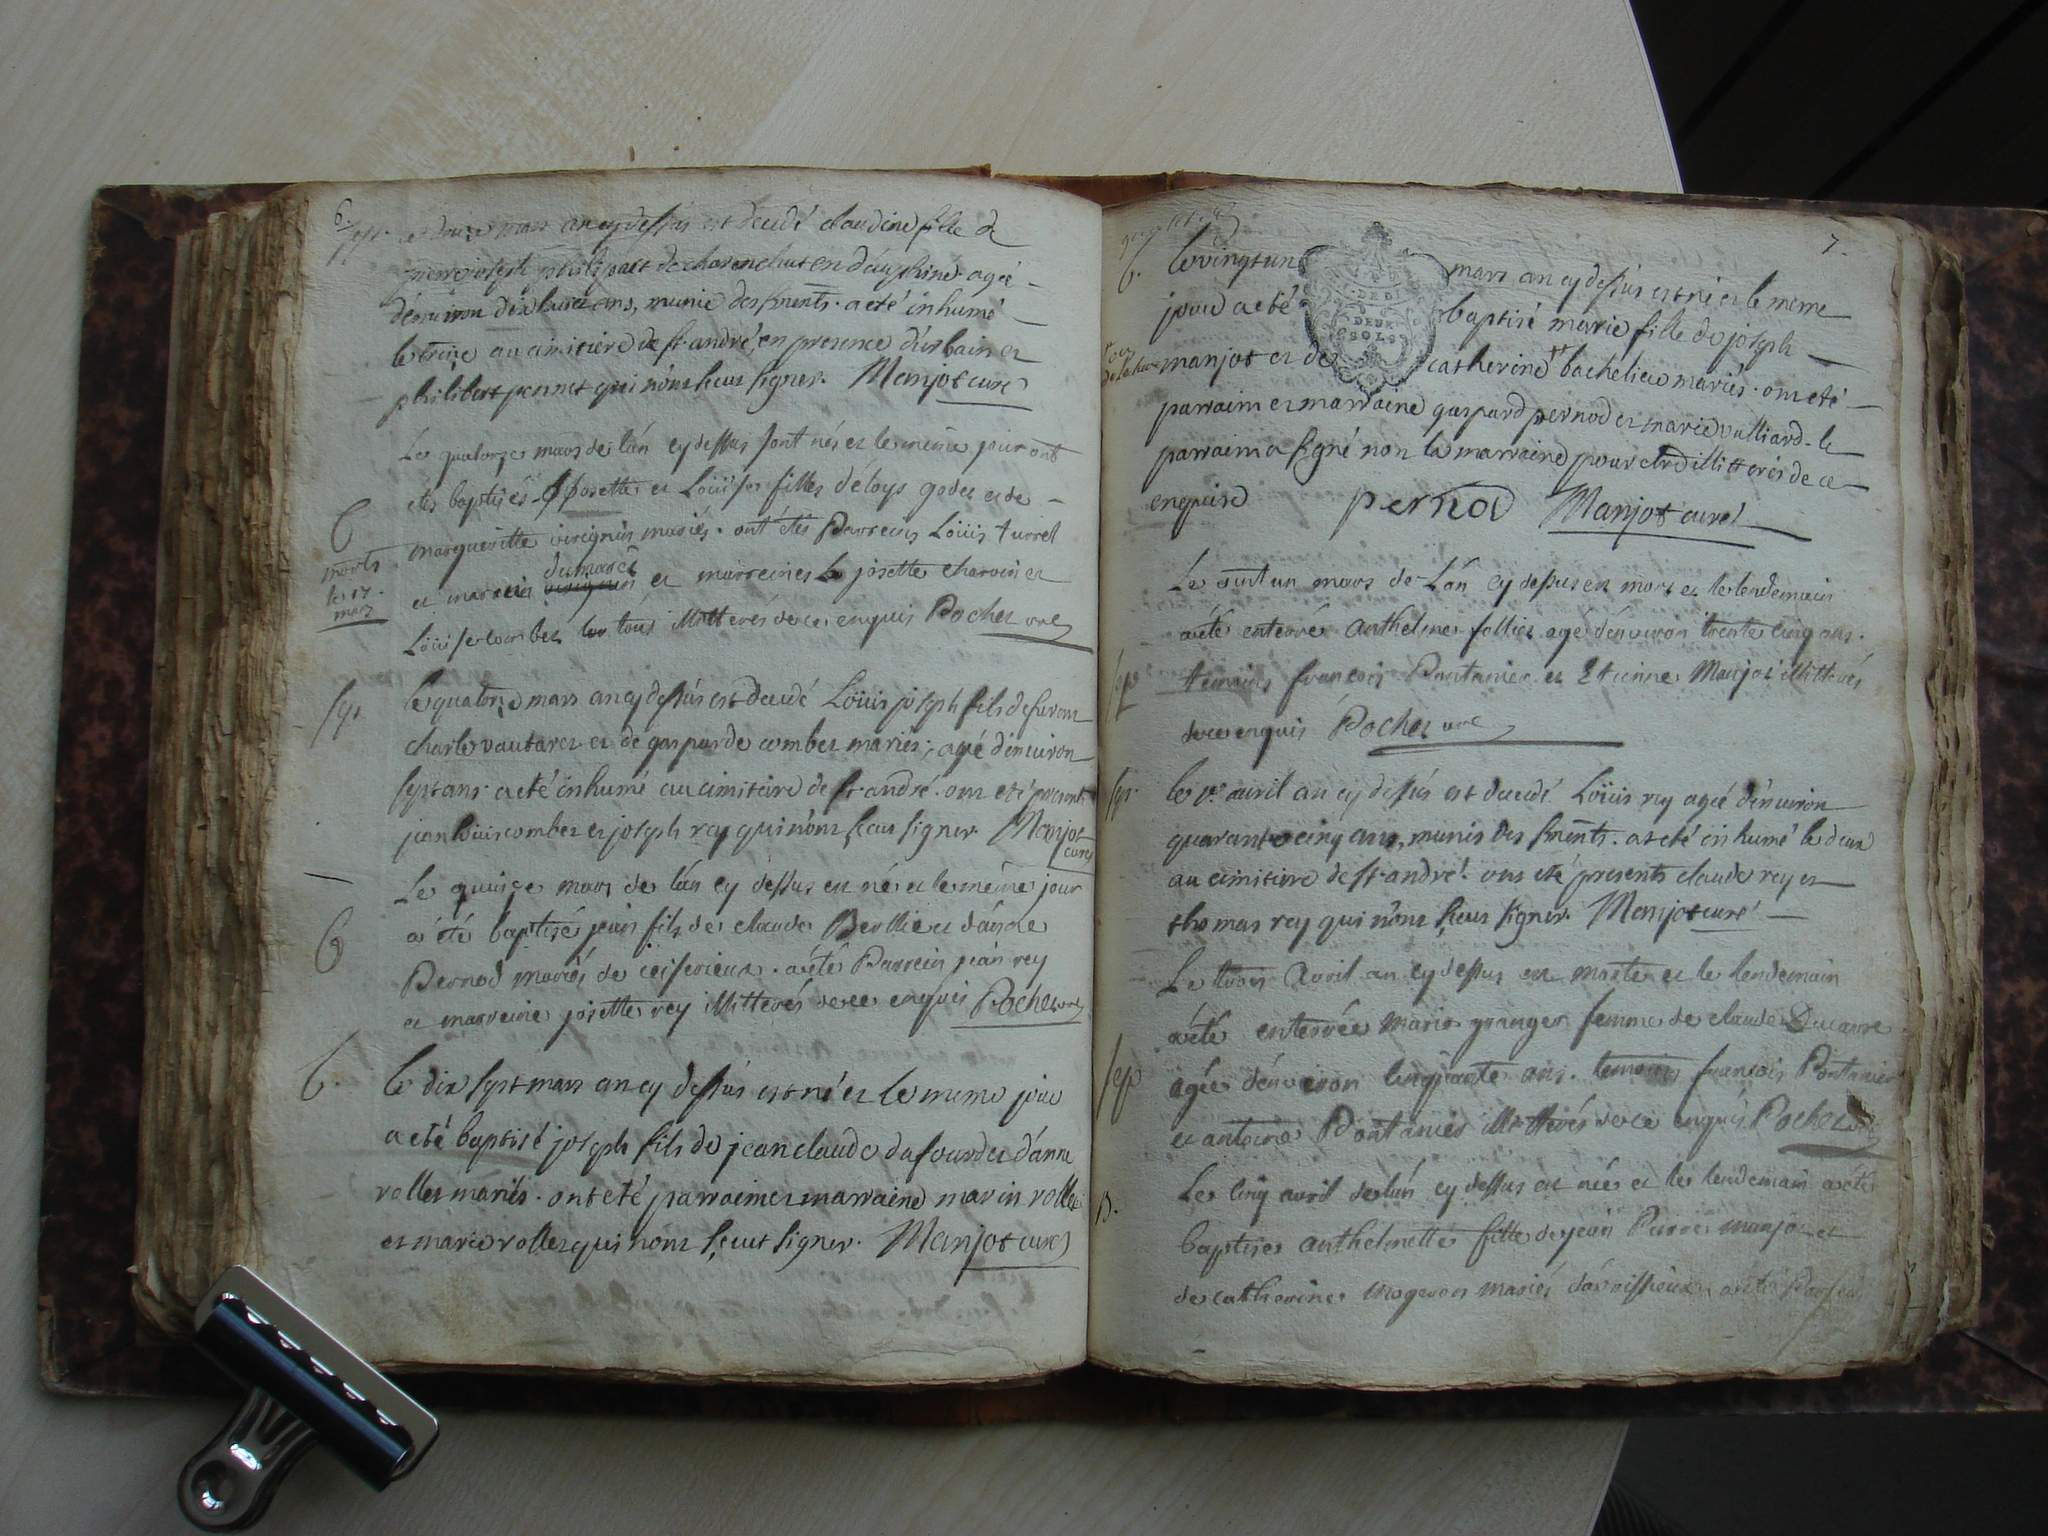 6.
sep. le douze mars an cy dessus est decedé claudine fille de
pierre joseph philipaet de charencluet en dauphiné agée
d'environ dix huict ans, munie des sments. a eté inhumé
le treize au cimitiere de st. andré, en presence d'urbain et
philibert pennet qui n'ont sceus signer. Manjot curé
Le quatorze mars de l'án cy dessus sont nés et le méme jour ont
etés baptisés josette et Loüise filles d'eloys godet et de
B
marguerite viregnin mariés. ont étés Parreins Loüis turrel
morts
le 17.
mars
dumarest
et marin et marreines josette charvin et
Loüise combet tous illitterés de ce enquis Pochet curé
sep.
le quatorze mars an cy dessus est decedé Loüis joseph fils de feu
charle vautaret et de gasparde combet mariés; agé d'environ
sept ans. a eté inhumé au cimitiere de st. andré. ont eté presents
jean loüis combet et joseph rey qui n'ont sceus signer. Manjot
curé
Le quinze mars de l'án cy dessus est né et le méme jour
B
a été baptisé jean fils de claude Berlliet et d'
Pernod mariés de ceiserieux. a été Parrein jeán rey
et marreine josette rey illitterés de ce enquis Pochet curé
b.
le dix sept mars an cy dessus est né et le meme jour
a eté baptisé joseph fils de jean claude dufour et d'anne
rollet mariés. ont eté parraim et marraine marin rollet
et marie rollet qui n'ont sceut signer. Manjot curé
7.
b. le vingt un mars an cy dessus est né et le meme
jour a eté baptisé marie fille de joseph
DEUX
SOLS
manjot et de catherine bachelier mariés. ont eté
parraim et marraine gaspard pernod et marie vulliard. le
parraim a signé non la marraine pour etre illitterés de ce
enquise pernod Manjot curé
Le vint un mars de l'án cy dessus est mort et le lendemain
a été enterré anthelme follier agé d'environ trente cinq ans.
sep
temoins francois Pontanier et Etienne Manjot illitterés
de ce enquis Pochet curé
sep.
le 1er. avril an cy dessus est decedé Loüis rey agé d'environ
quarante cinq ans, munis des sments. a eté inhumé le deux
au cimitiere de st. andré. ont eté presents claude rey et
thomas rey qui n'ont sceus signer. Manjot curé
Le trois Avril an cy dessus est morte et le lendemain
a été enterrée marie granger femme de claude Ducarre
sep
agée d'environ cinquante ans. temoins francois Pontanier
et antoine Pontanier illitterés de ce enquis Pochet curé
Le cinq avril de l'án cy dessus est née et le lendemain a été
B.
baptisée anthelmette fille de jeán Pierre manjot et
de catherine mogeron mariés d'avrissieux. a été Parrein